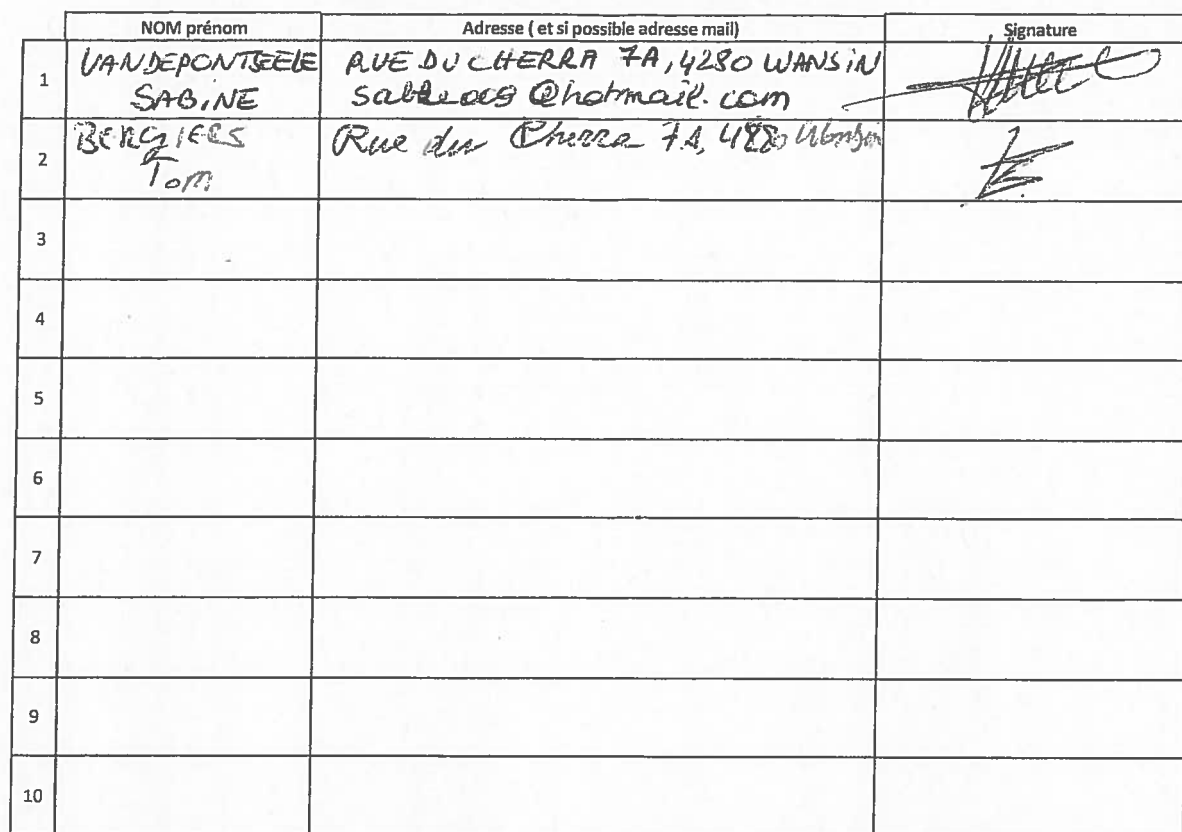 NOM prénom Adresse ( et si possible adresse mail) Signature
1 VANDEPONTSEELE RUE DU CHERRA 7A, 4280 WANSIN
SABINE @hotmail.com
2 BERGIERS Rue du Cherra 7A, Wansin
Tom
3
4
5
6
7
8
9
10